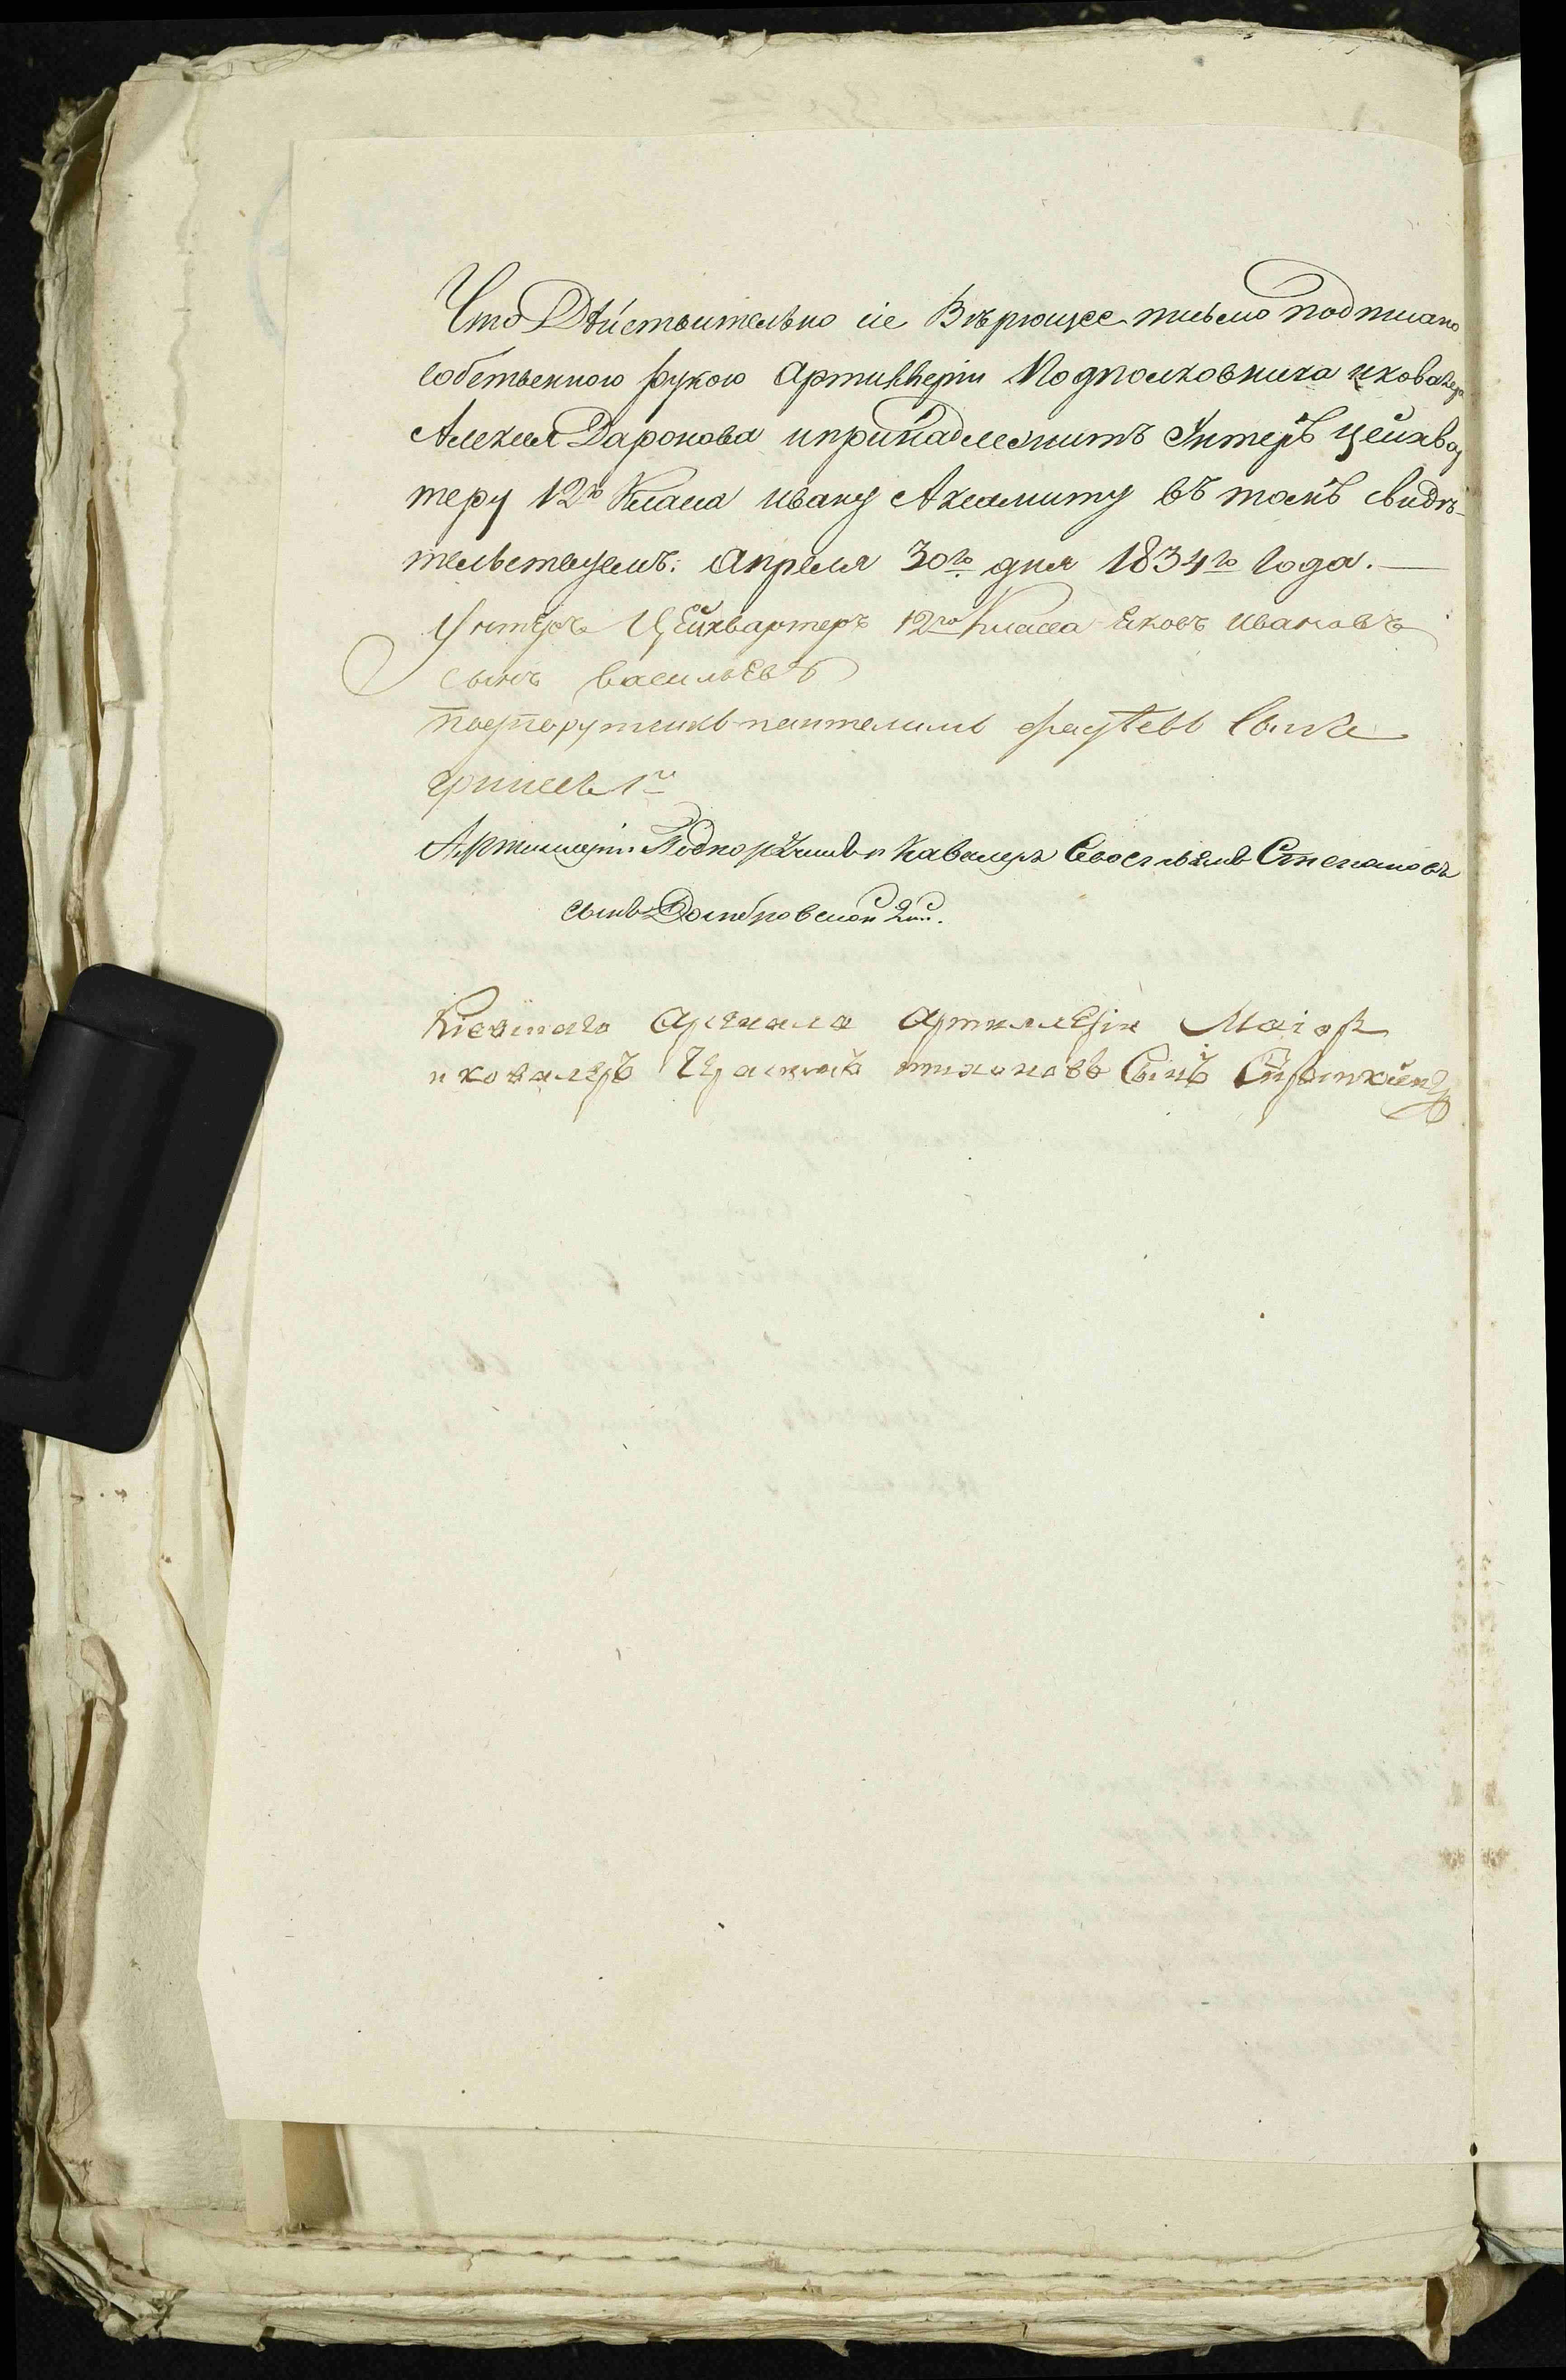 Что Действительно сіе Вѣрющее письмо подписано
собственною рукою Артиллеріи Подполковника икавалера
Алексея Даронова ипринадлежитъ Унтеръ Цейхвар
теру 12го Класа ивану Аксамиту въ томъ свидѣ-
тельствуемъ. Апреля 30го дня 1834го Года.
Унтеръ Цейхвартеръ 12го Класса Яковъ ивановъ
сынъ васильевъ
подпорутчикъ пантелимъ сынъ
1й
Артиллеріи Подпорутчикъ и Кавалеръ Севостьянъ Степановъ
сынъ Домбровской 2й.
Кіевскаго Арсенала Артиллеріи Маіоръ
и кавалеръ Герасимъ тихоновъ Сынъ